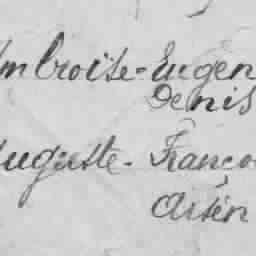 mbroise-Eugen
Denis
uguste-Franço
Arsèn